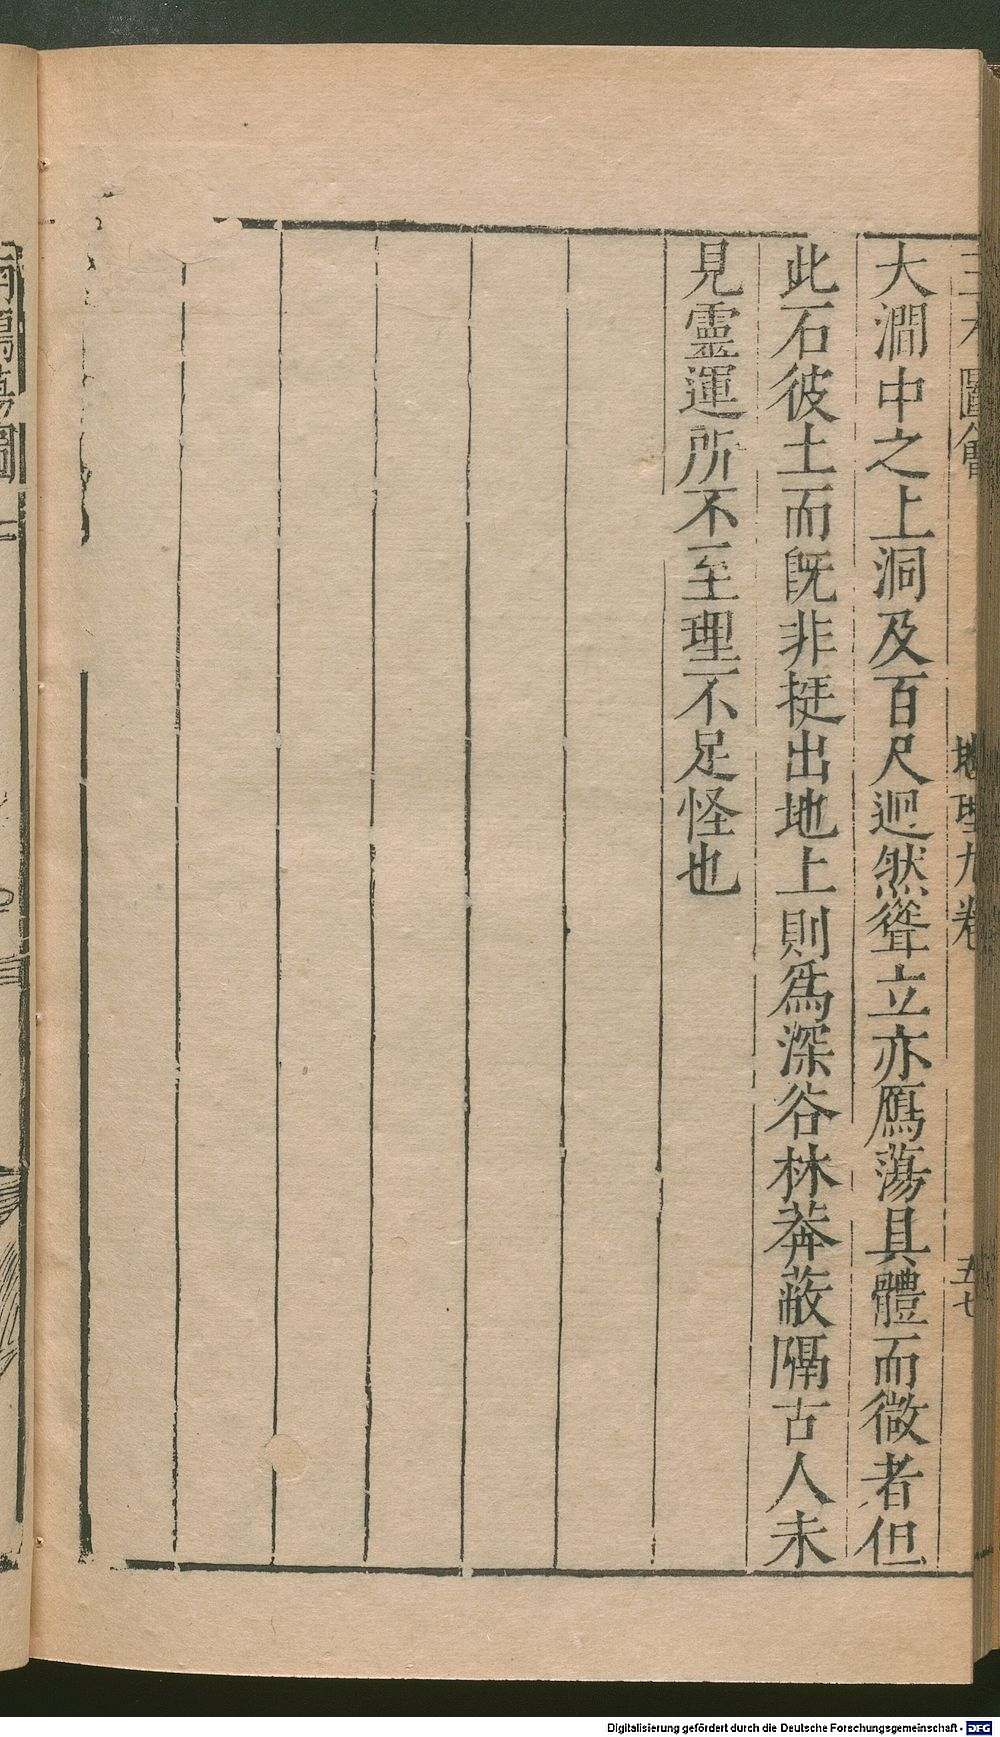 三才圖會 地理九卷 五七
大澗中之上洞及百尺迥然聳立亦鴈蕩具體而微者但
此石彼土而既非挺出地上則為深谷林莽蔽隔古人未
見靈運所不至理不足怪也
蕩圖
Digitalisierung gefördert durch die Deutsche Forschungsgemeinschaft - DFG